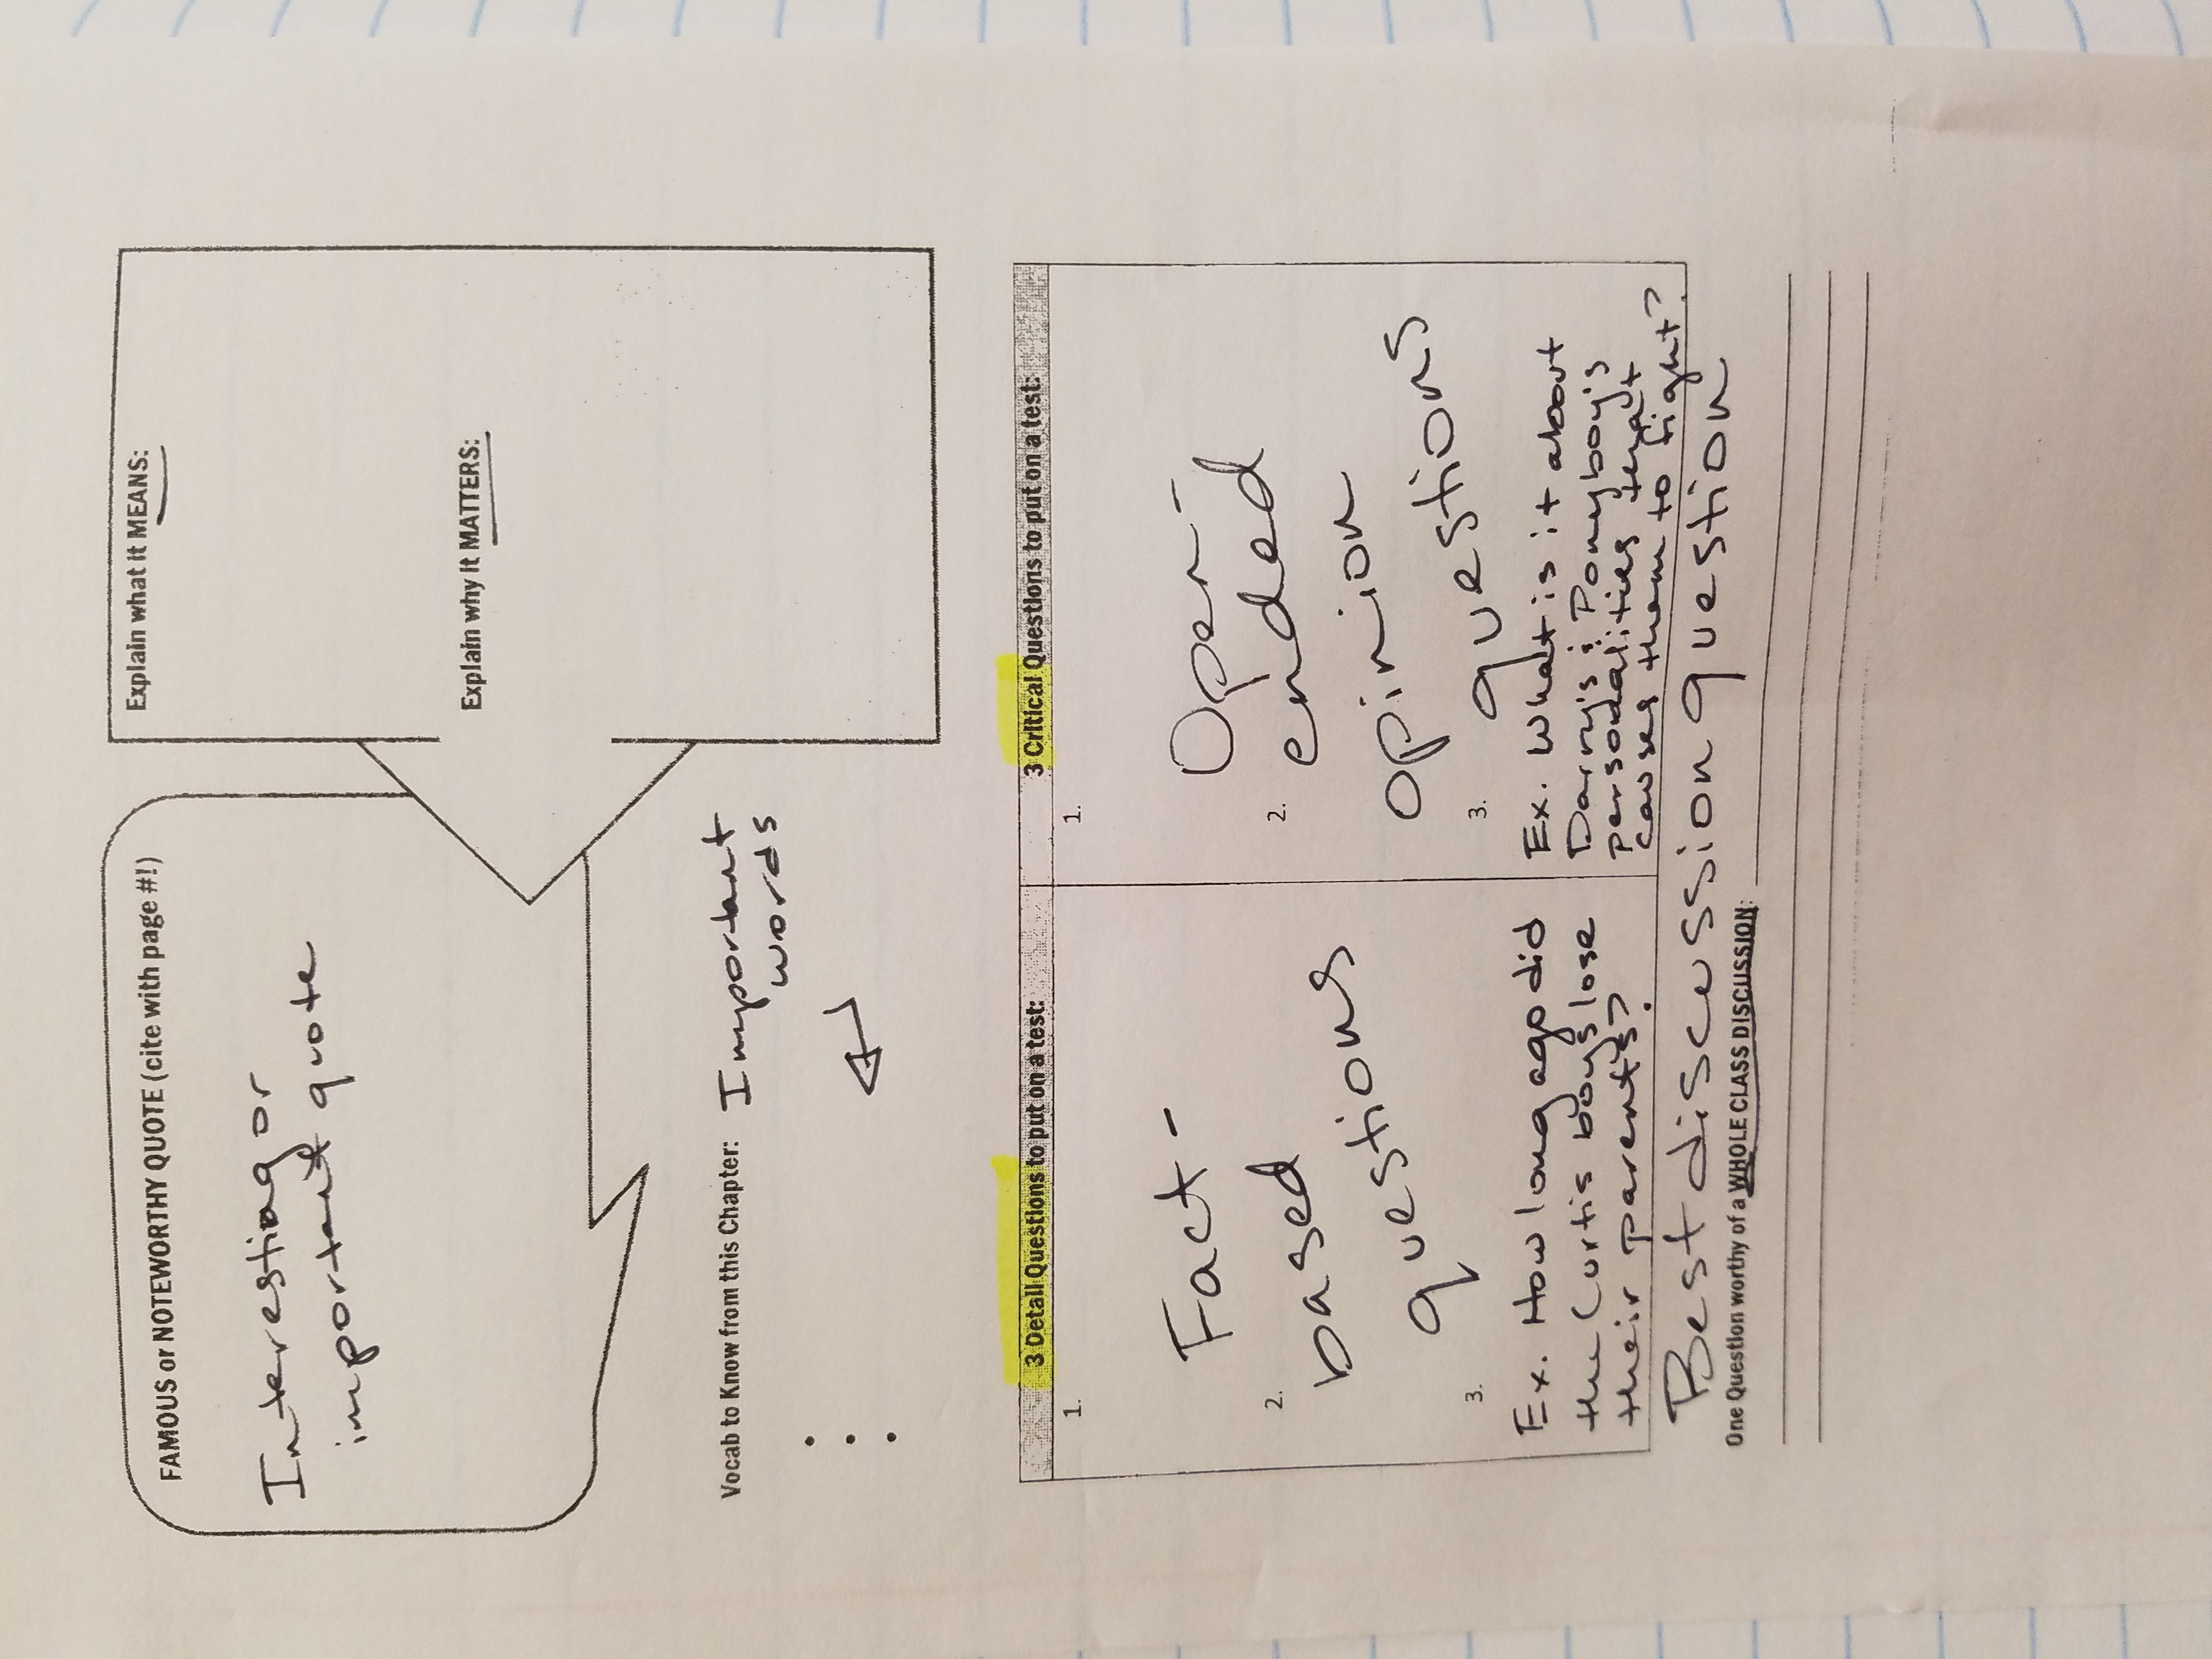 FAMOUS or NOTEWORTHY QUOTE (cite with page #!)
Interesting or
important quote
Explain what it MEANS:
Explain why it MATTERS:
Vocab to Know from this Chapter: Important
words
3 Detail Questions to put on a test:
1.
Fact-
2.
based
questions
3.
Ex. How long ago did
the Curtis boys lose
their parents?
3 Critical Questions to put on a test:
1.
Open-
2.
ended
opinion
3.
questions
Ex. What is it about
Darry's & Ponyboy's
personalities that
causes them to fight?
Best discussion question
One Question worthy of a WHOLE CLASS DISCUSSION: